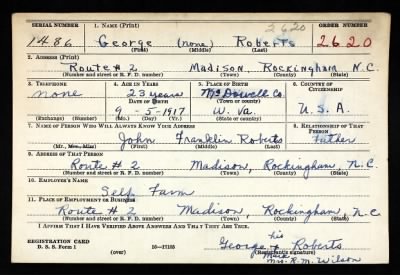 SERIAL NUMBER 1. NAME (Print) 2620 ORDER NUMBER
1486 George (none) Roberts 2620
(First) (Middle) (Last)
2. ADDRESS (Print)
Route # 2 Madison, Rockingham N.C.
(Number and street or R. F. D. number) (Town) (County) (State)
3. TELEPHONE 4. AGE IN YEARS 5. PLACE OF BIRTH 6. COUNTRY OF CITIZENSHIP
none 23 years McDowell Co.
DATE OF BIRTH (Town or county)
9 - 5 - 1917 W. Va. U. S. A.
(Exchange) (Number) (Mo.) (Day) (Yr.) (State or country)
7. NAME OF PERSON WHO WILL ALWAYS KNOW YOUR ADDRESS 8. RELATIONSHIP OF THAT PERSON
John Franklin Roberts Father
(Mr., Mrs., Miss) (First) (Middle) (Last)
9. ADDRESS OF THAT PERSON
Route # 2 Madison, Rockingham, N.C.
(Number and street or R. F. D. number) (Town) (County) (State)
10. EMPLOYER'S NAME
Self Farm
11. PLACE OF EMPLOYMENT OR BUSINESS
Route # 2 Madison, Rockingham, N.C
(Number and street or R. F. D. number) (Town) (County) (State)
I AFFIRM THAT I HAVE VERIFIED ABOVE ANSWERS AND THAT THEY ARE TRUE.
his
George x Roberts
REGISTRATION CARD mark (Registrant's signature)
D. S. S. Form 1 (over) 16—17105 Mrs. R. M. Wilson